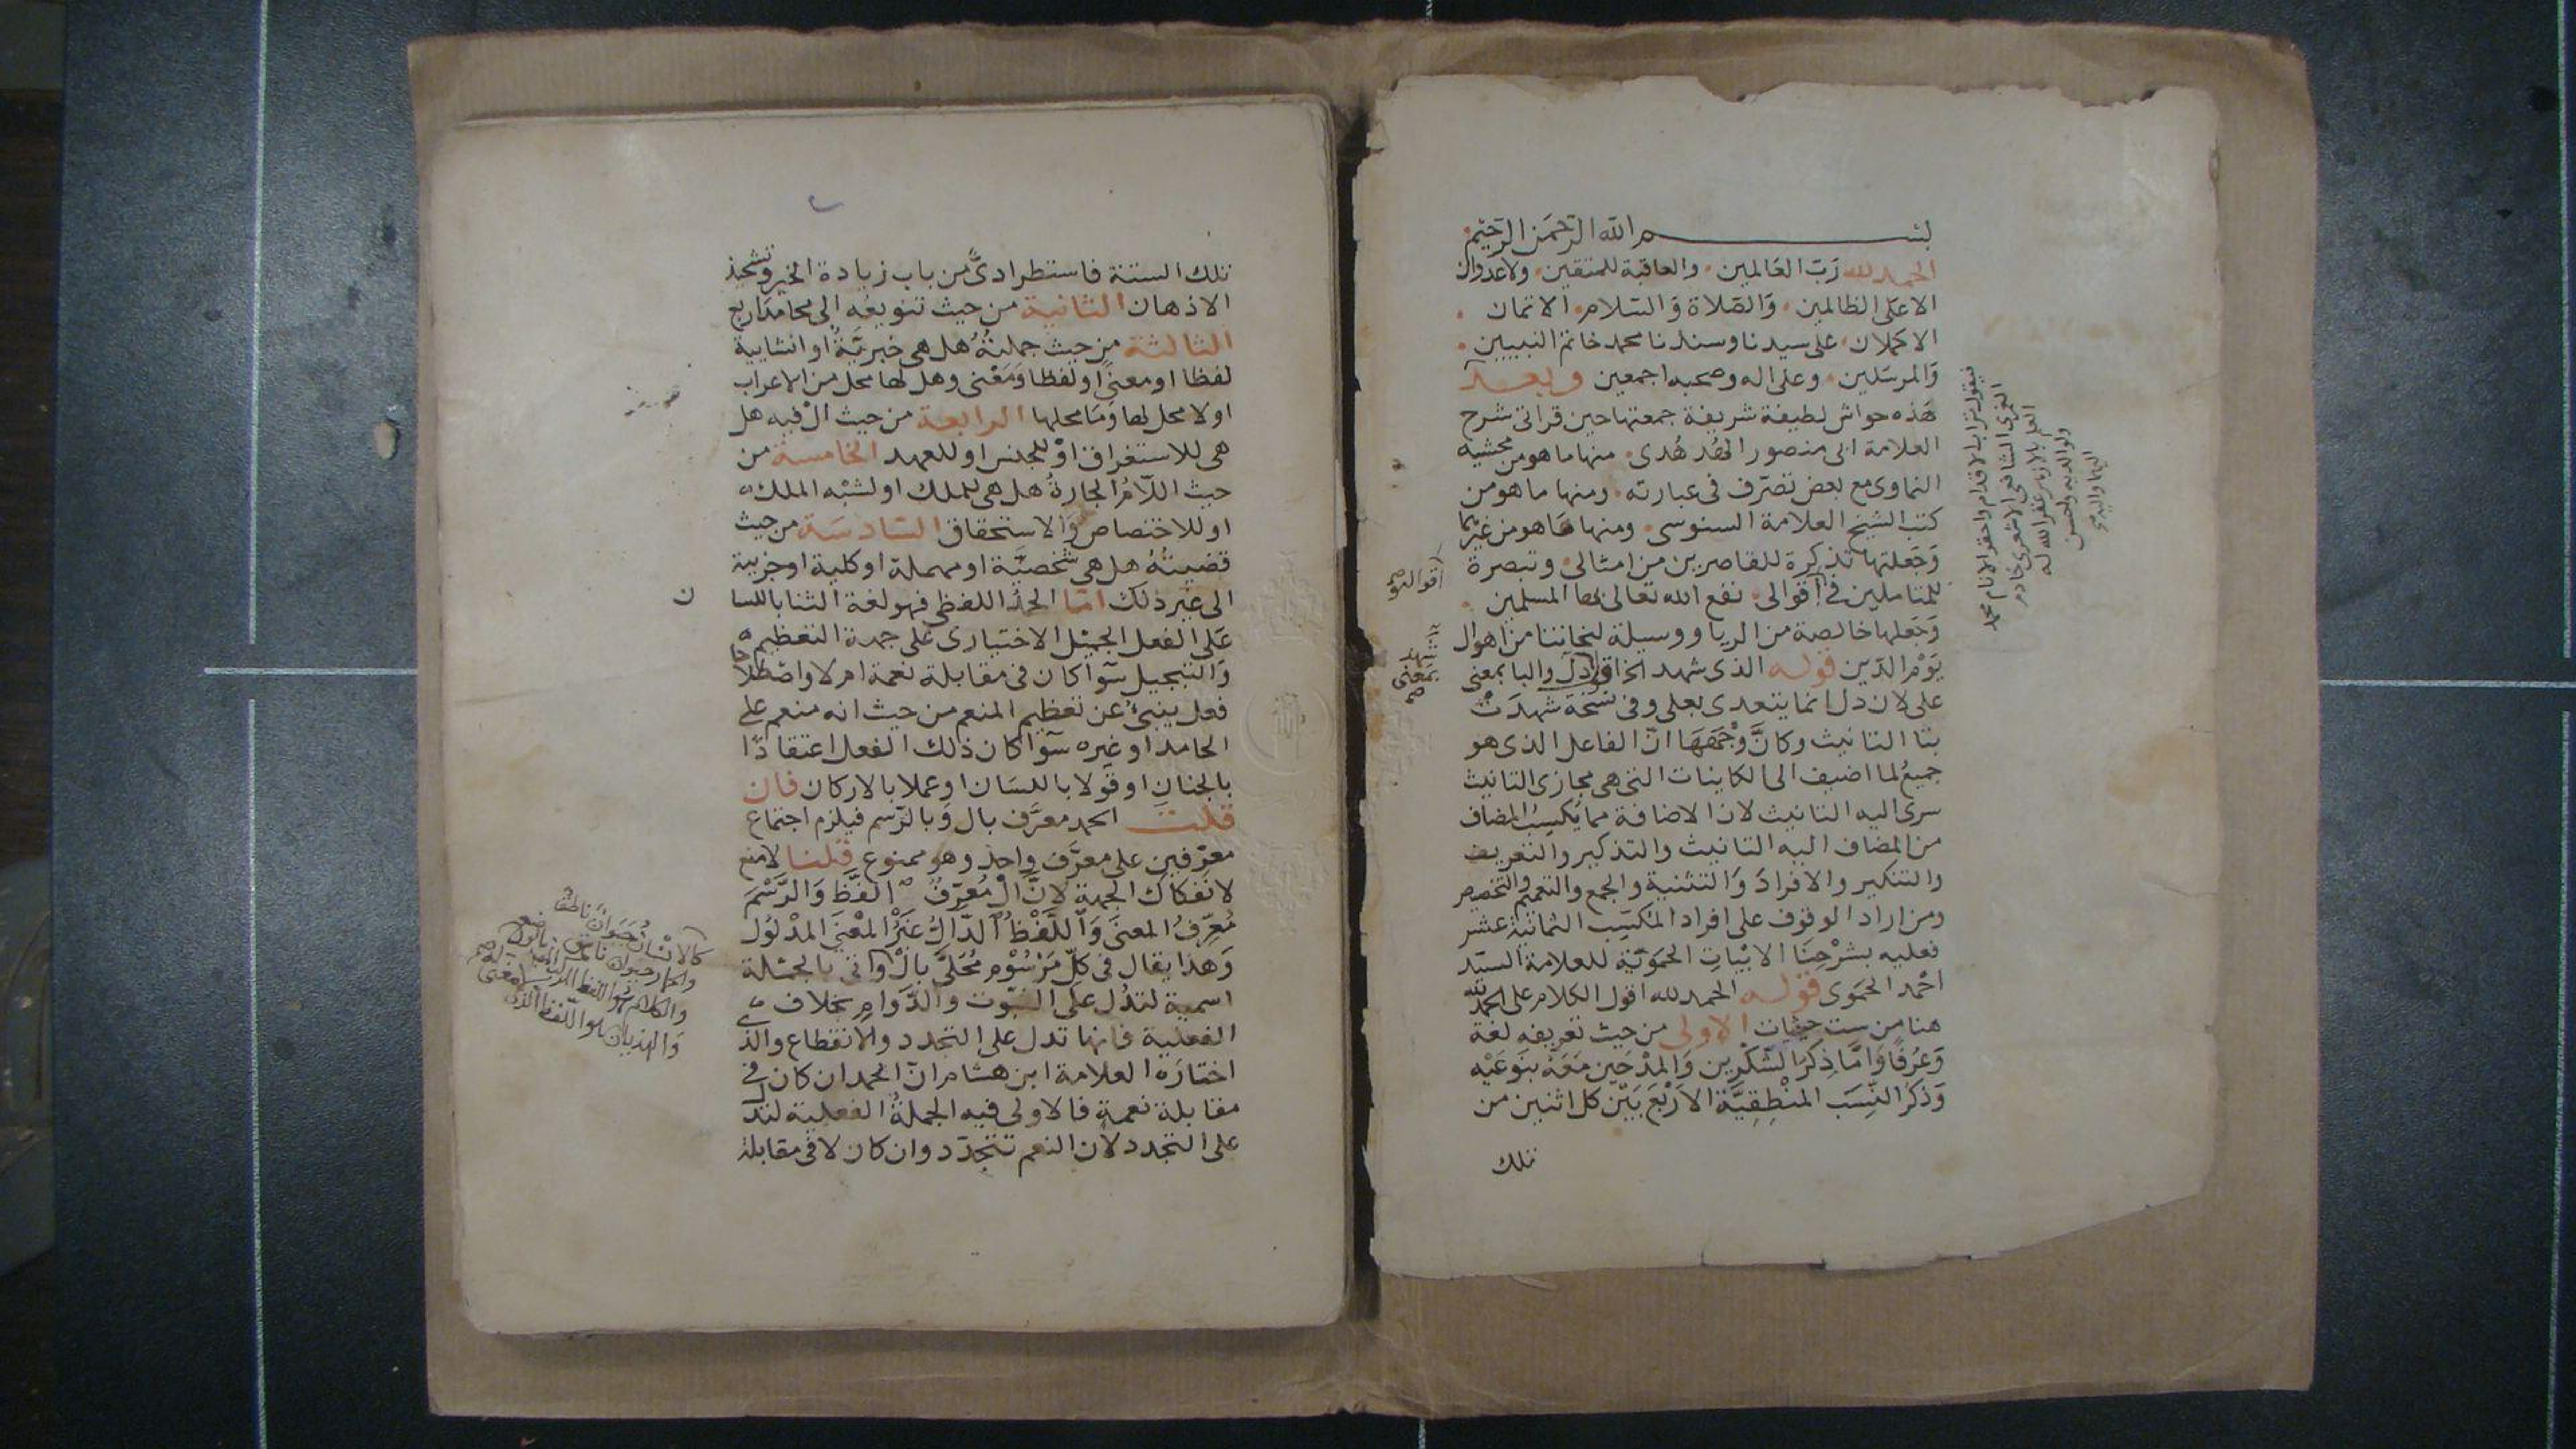 بسم الله الرحمن الرحيم
الحمد لله رَبّ العَالمين. والعاقبة للمتقين. ولا عدوان
الا على الظالمين. وَالصّلاة وَالسّلام. الاتمان
الاكملان. على سيدنا وسندنا محمد خاتم النبيين.
وَالمرسَلين. وعلى اله وصحبه اجمعين وبعد
هَذه حواش لطيفة شريفة جمعتها حين قراتى شرح
العلامة ابى منصور الهُدهُدى. منها ما هو من محشيه
النماوى مع بعض تصَرّف فى عبارته. ومنها ما هو من
كتب الشيخ العلامة السنوسى. ومنها مَا هو من غيرهما
وَجَعلتها تذكرة للقاصرين من امثالى. وتبصرة
للمتاملين فى اقوالى. نفع الله تعالى بها المسلمين.
وَجَعلها خالصة من الريا ووسيلة لنجاتنا من اهوال
يَوْم الدّين قوله الذى شهد الخ اقول دلّ والبا بمعنى
على لان دل انما يتعدى بعلى وفى نسْخَة شهدَتْ
بتا التانيث وكانَّ وَجْهَهَا انّ الفاعل الذى هو
جميعُ لما اضيف الى الكاينات التى هى مجازى التانيث
سرى اليه التانيث لان الاضافة مما يُكسِبُ المضاف
من المضاف اليه التانيث والتذكير والتعريف
والتنكير والافرادَ وَالتثنية والجمع والتعميم والتخصيص
ومن اراد الوقوف على افراد المكتسَب الثمانية عشر
فعليه بشرْحِنَا الابْيَاتِ الحمَوِيّة للعلامة السيّد
احْمد الحمَوى قوله الحمد لله اقول الكلام على الحمد لله
هنا من ست حيثيات الاولى من حيث تعريفه لغة
وَعُرفًا وَامَّا ذِكرُ الشّكرين وَالمدْحَين مَعَهُ بنَوعَيْه
وَذكرُ النِّسَب المنْطِقِيَّة الارْبَعَ بَيْن كل اثنين من
تلك
فيقول تراب الاقدام واحقر الانام محمد
الشافعى الاشعرى خادم
العلم بالازهر غفر الله له
ولوالديه واحسن
اليهما واليه
اقوالى
شهد
بمعنى
تلك الستة فاستطرادىٌّ من باب زيادة الخير وتشحيذ
الاذهان الثانية من حيث تنويعُه الى محامدَ اربع
الثالثة من حيث جملتهُ هل هى خبريّةٌ او انشاىية
لفظا او معنى او لفظا وَمَعْنى وهل لها محل من الاعراب
اولا محل لها وَمَا محلها الرابعة من حيث الْ فيه هل
هى للاستغراق اوْ للجنس او للعهد الخامسة من
حيث اللاّمُ الجارةُ هل هى للملك او لشبْه الملك
او للاختصاص وَالاستحقاق السّادسَة من حيث
قضيتهُ هل هى شخصيَّة او مهملة او كلية او جزىية
الى غير ذلك امّا الحمْدُ اللفظى فهو لغة الثنا باللسا
ن
عَلى الفعل الجميْل الاختيارى عَلى جهة التعظيم
وَالتبجيل سَوآ كان فى مقابلة نعمة ام لا واصْطلاحا
فعل ينبىُ عن تعظيم المنعم من حيث انه منعم على
الحامد او غيره سَوآ كان ذلك الفعل اعتقادًا
بالجنان او قَولا باللسَان او عملا بالاركان فان
قلت الحمد معرَّف بال وَبالرّسم فيلزم اجتماع
معرّفين على معرَّفٍ واحدٍ وهو ممنوع قلنا لا منع
لانفكاك الجهة لانّ الْ مُعرّفُ اللفظ وَالرّسْمَ
مُعرِّفُ المعنَى وَاللّفظُ الدّالُّ غيرُ المعْنَى المدْلُول
وَهذا يقال فى كلّ مَرْسُوْمٍ مُحَلًّى بالْ واتى بالجمْلة
اسمية لتدُل على الثبوت وَالدّوامِ بخلاف
الفعلية فانها تدل على التجدد والانقطاع والذى
اختارَه العلامة ابن هشام انّ الحمد ان كان فى
مقابلة نعمةٍ فالاولى فيه الجملةُ الفعلية لتدل
على التجدد لان النعم تتجدّد وان كان لا فى مقابلة
كالانسان حَيَوانٌ ناطق
والحمار حيوان ناهق
والكلام هو اللفظ المركب
وَالهذيان هو اللّفظ الذى